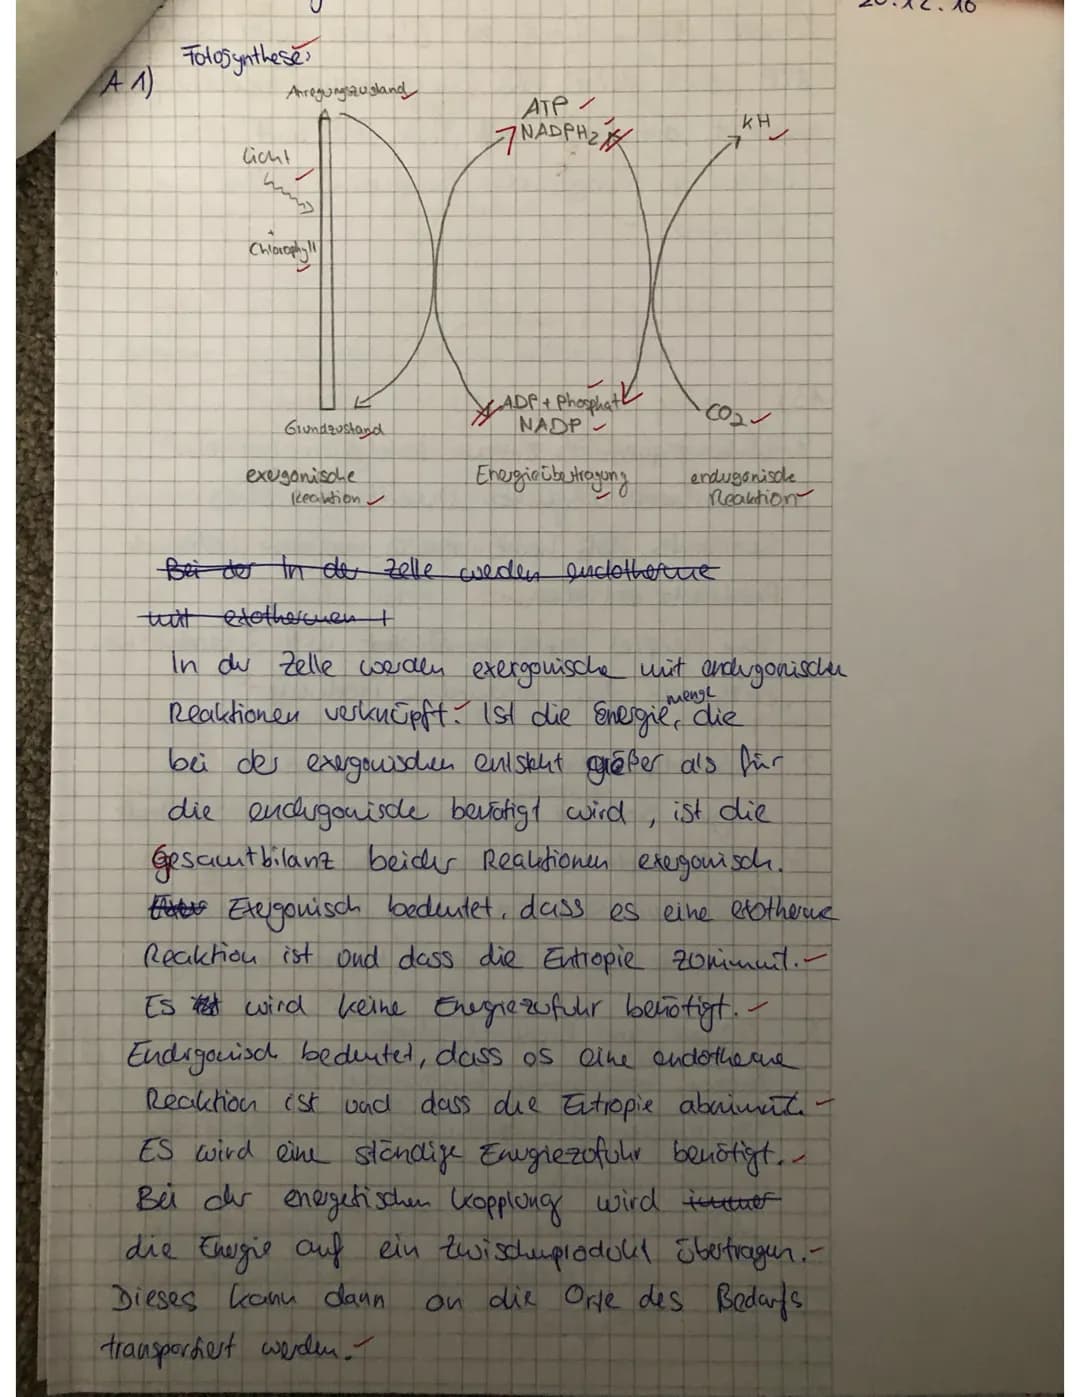 20.12.16
Fotosynthese:
A 1)
Anregungszustand
ATP
NADPH2
KH
Licht
+
Chlorophyll
ADP + Phosphat
NADP
CO2
Grundzustand
exergonische
Reaktion
Energieübertragung
endergonische
Reaktion
Bei der In der Zelle werden endotherme
mit exothermen
In der Zelle werden exergonische mit endergonischen
Reaktionen verknüpft. Ist die Energiemenge, die
bei der exergonischen entsteht größer als für
die endergonische benötigt wird, ist die
Gesamtbilanz beider Reaktionen exergonisch.
Exergonisch bedeutet, dass es eine exotherme
Reaktion ist und dass die Entropie zunimmt.
Es ist wird keine Energiezufuhr benötigt.
Endergonisch bedeutet, dass es eine endotherme
Reaktion ist und dass die Entropie abnimmt.
ES wird eine ständige Energiezufuhr benötigt.
Bei der energetischen Kopplung wird immer
die Energie auf ein Zwischenprodukt übertragen.
Dieses kann dann an die Orte des Bedarfs
transportiert werden.